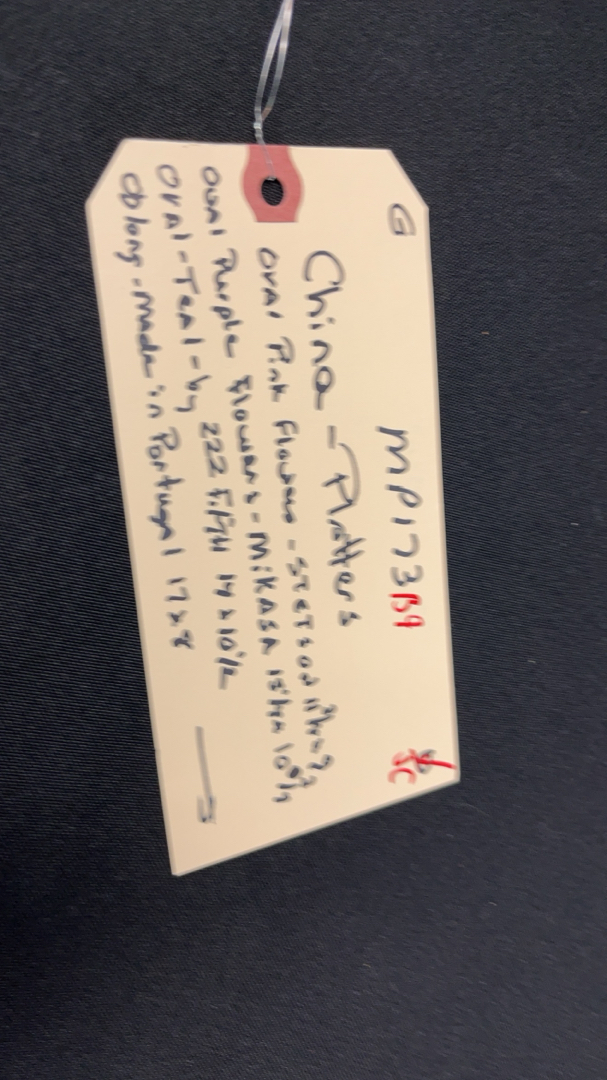 G MP173 B9
China - Platters
Oval Pink Flowers - STETSON
Oval Purple Flowers - MIKASA
Oval - Teal - by 222 Fifth 14 x 10 1/2
Oblong - made in Portugal 17 x 8